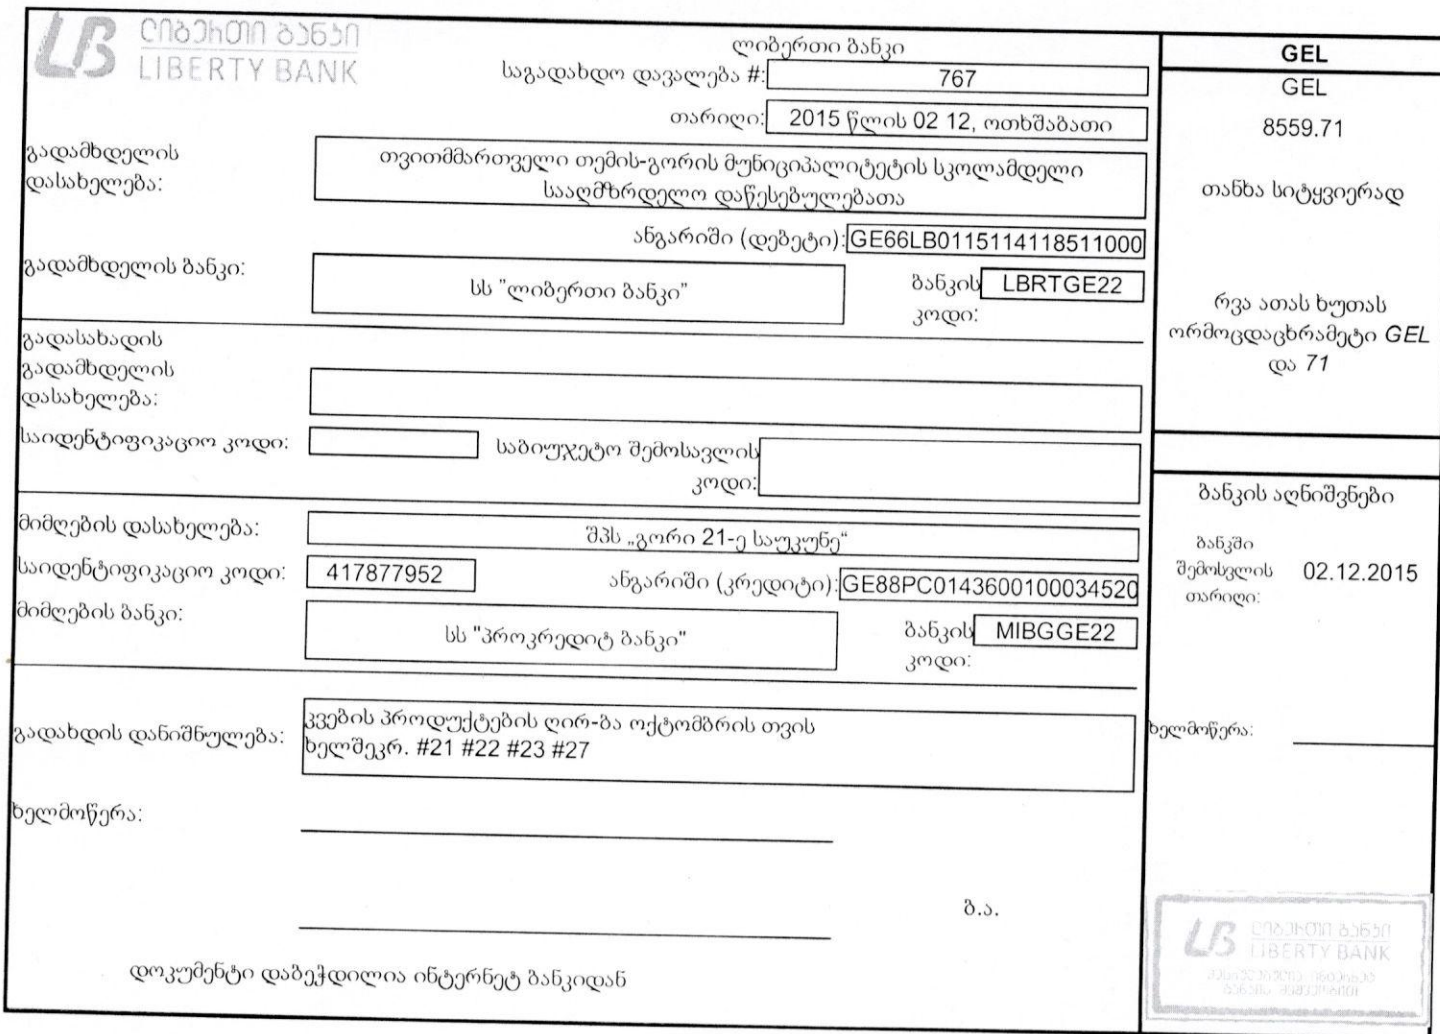 ლიბერთი ბანკი
LIBERTY BANK
ლიბერთი ბანკი
საგადახდო დავალება #: 767
თარიღი: 2015 წლის 02 12, ოთხშაბათი
გადამხდელის
დასახელება:
თვითმმართველი თემის-გორის მუნიციპალიტეტის სკოლამდელი
სააღმზრდელო დაწესებულებათა
ანგარიში (დებეტი): GE66LB0115114118511000
გადამხდელის ბანკი:
სს "ლიბერთი ბანკი"
ბანკის LBRTGE22
კოდი:
გადასახადის
გადამხდელის
დასახელება:
საიდენტიფიკაციო კოდი:
საბიუჯეტო შემოსავლის
კოდი:
მიმღების დასახელება: შპს „გორი 21-ე საუკუნე“
საიდენტიფიკაციო კოდი: 417877952 ანგარიში (კრედიტი): GE88PC0143600100034520
მიმღების ბანკი:
სს "პროკრედიტ ბანკი"
ბანკის MIBGGE22
კოდი:
გადახდის დანიშნულება:
კვების პროდუქტების ღირ-ბა ოქტომბრის თვის
ხელშეკრ. #21 #22 #23 #27
ხელმოწერა:
ბ.ა.
დოკუმენტი დაბეჭდილია ინტერნეტ ბანკიდან
GEL
GEL
8559.71
თანხა სიტყვიერად
რვა ათას ხუთას
ორმოცდაცხრამეტი GEL
და 71
ბანკის აღნიშვნები
ბანკში
შემოსვლის 02.12.2015
თარიღი:
ხელმოწერა:
ლიბერთი ბანკი
LIBERTY BANK